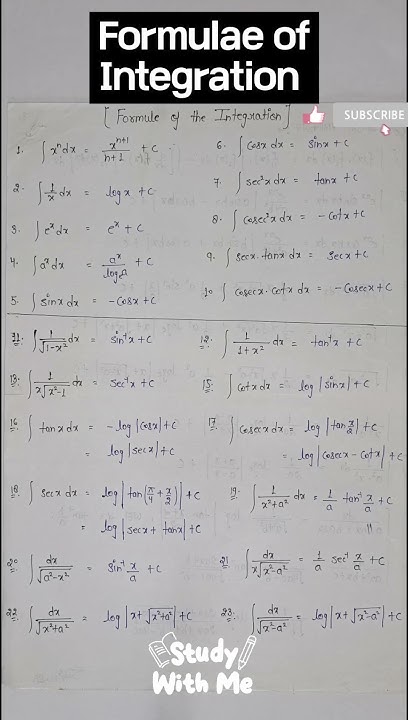 Formulae of
Integration
[ Formule of the Integration ]
SUBSCRIBE
1. ∫ xⁿ dx = xⁿ⁺¹/(n+1) + c
2. ∫ 1/x dx = log x + c
3. ∫ eˣ dx = eˣ + c
4. ∫ aˣ dx = aˣ/log a + c
5. ∫ sin x dx = -cos x + c
6. ∫ cos x dx = sin x + c
7. ∫ sec²x dx = tan x + c
8. ∫ cosec²x dx = -cot x + c
9. ∫ sec x . tan x dx = sec x + c
10 ∫ cosec x . cot x dx = -cosec x + c
11. ∫ 1/√(1-x²) dx = sin⁻¹x + c
12. ∫ 1/(1+x²) dx = tan⁻¹x + c
13. ∫ 1/(x√(x²-1)) dx = sec⁻¹x + c
15. ∫ cot x dx = log |sin x| + c
16. ∫ tan x dx = -log |cos x| + c
= log |sec x| + c
17. ∫ cosec x dx = log |tan x/2| + c
= log |cosec x - cot x| + c
18. ∫ sec x dx = log |tan(π/4 + x/2)| + c
= log |sec x + tan x| + c
19. ∫ 1/(x²+a²) dx = 1/a tan⁻¹ x/a + c
"
20. ∫ dx/√(a²-x²) = sin⁻¹ x/a + c
21. ∫ dx/(x√(x²-a²)) = 1/a sec⁻¹ x/a + c
22. ∫ dx/√(x²+a²) = log |x+√(x²+a²)| + c
23. ∫ dx/√(x²-a²) = log |x+√(x²-a²)| + c
Study
With Me